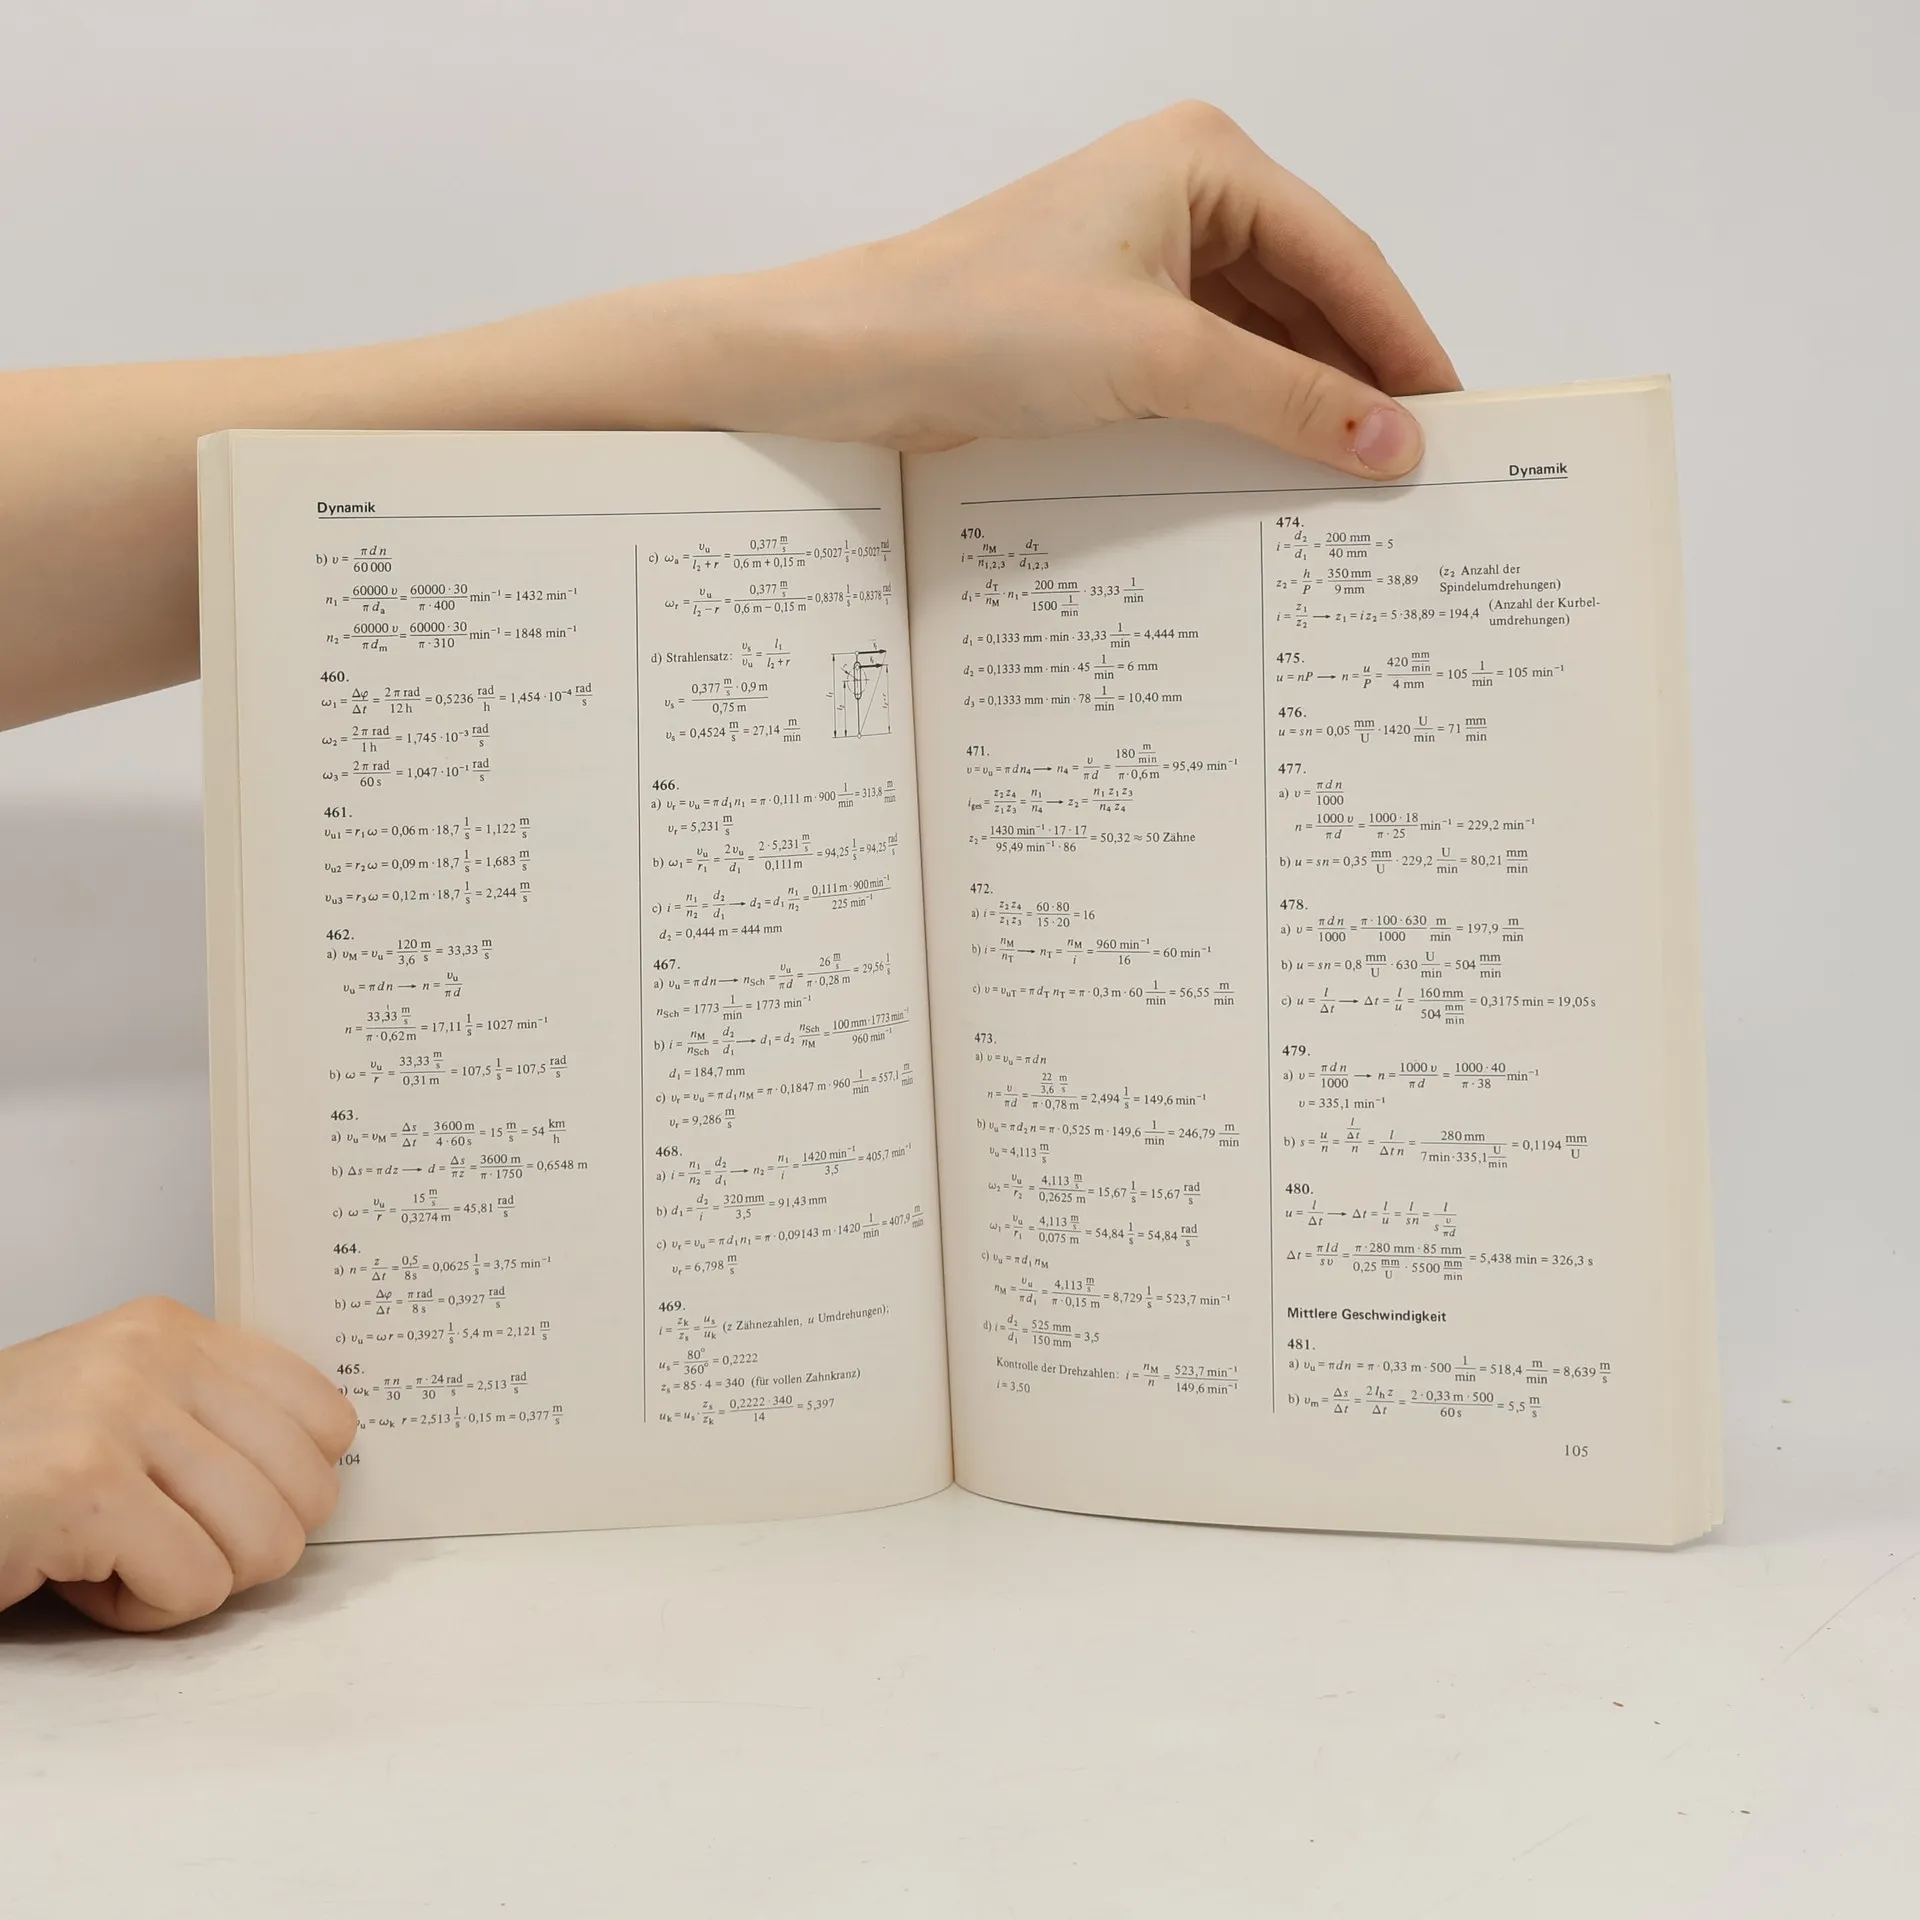 Dynamik
b) υ = π d n / 60 000
n₁ = 60000 υ / π dₐ = 60000 · 30 / π · 400 min⁻¹ = 1432 min⁻¹
n₂ = 60000 υ / π dₘ = 60000 · 30 / π · 310 min⁻¹ = 1848 min⁻¹
460.
ω₁ = Δφ / Δt = 2 π rad / 12 h = 0,5236 rad/h = 1,454 · 10⁻⁴ rad/s
ω₂ = 2 π rad / 1 h = 1,745 · 10⁻³ rad/s
ω₃ = 2 π rad / 60 s = 1,047 · 10⁻¹ rad/s
461.
υu1 = r₁ω = 0,06 m · 18,7 1/s = 1,122 m/s
υu2 = r₂ω = 0,09 m · 18,7 1/s = 1,683 m/s
υu3 = r₃ω = 0,12 m · 18,7 1/s = 2,244 m/s
462.
a) υM = υu = 120 / 3,6 m/s = 33,33 m/s
υu = π d n → n = υu / π d
n = 33,33 m/s / π · 0,62 m = 17,11 1/s = 1027 min⁻¹
b) ω = υu / r = 33,33 m/s / 0,31 m = 107,5 1/s = 107,5 rad/s
463.
a) υu = υM = Δs / Δt = 3600 m / 4 · 60 s = 15 m/s = 54 km/h
b) Δs = π d z → d = Δs / π z = 3600 m / π · 1750 = 0,6548 m
c) ω = υu / r = 15 m/s / 0,3274 m = 45,81 rad/s
464.
a) n = z / Δt = 0,5 / 8 s = 0,0625 1/s = 3,75 min⁻¹
b) ω = Δφ / Δt = π rad / 8 s = 0,3927 rad/s
c) υu = ω r = 0,3927 1/s · 5,4 m = 2,121 m/s
465.
) ωk = π n / 30 = π · 24 rad / 30 s = 2,513 rad/s
υu = ωk r = 2,513 1/s · 0,15 m = 0,377 m/s
104
c) ωa = υu / l₂ + r = 0,377 m/s / 0,6 m + 0,15 m = 0,5027 1/s = 0,5027 rad/s
ωr = υu / l₂ − r = 0,377 m/s / 0,6 m − 0,15 m = 0,8378 1/s = 0,8378 rad/s
d) Strahlensatz: υs / υu = l₁ / l₂ + r
υs = 0,377 m/s · 0,9 m / 0,75 m
υs = 0,4524 m/s = 27,14 m/min
466.
a) υr = υu = π d₁ n₁ = π · 0,111 m · 900 1/min = 313,8 m/min
υr = 5,231 m/s
b) ω₁ = υu / r₁ = 2 υu / d₁ = 2 · 5,231 m/s / 0,111 m = 94,25 1/s = 94,25 rad/s
c) i = n₁ / n₂ = d₂ / d₁ → d₂ = d₁ n₁ / n₂ = 0,111 m · 900 min⁻¹ / 225 min⁻¹
d₂ = 0,444 m = 444 mm
467.
a) υu = π d n → nSch = υu / π d = 26 m/s / π · 0,28 m = 29,56 1/s
nSch = 1773 1/min = 1773 min⁻¹
b) i = nM / nSch = d₂ / d₁ → d₁ = d₂ nSch / nM = 100 mm · 1773 min⁻¹ / 960 min⁻¹
d₁ = 184,7 mm
c) υr = υu = π d₁ nM = π · 0,1847 m · 960 1/min = 557,1 m/min
υr = 9,286 m/s
468.
a) i = n₁ / n₂ = d₂ / d₁ → n₂ = n₁ / i = 1420 min⁻¹ / 3,5 = 405,7 min⁻¹
b) d₁ = d₂ / i = 320 mm / 3,5 = 91,43 mm
c) υr = υu = π d₁ n₁ = π · 0,09143 m · 1420 1/min = 407,9 m/min
υr = 6,798 m/s
469.
i = zk / zs = us / uk (z Zähnezahlen, u Umdrehungen);
us = 80° / 360° = 0,2222
zs = 85 · 4 = 340 (für vollen Zahnkranz)
uk = us · zs / zk = 0,2222 · 340 / 14 = 5,397
Dynamik
470.
i = nM / n1,2,3 = dT / d1,2,3
d₁ = dT / nM · n₁ = 200 mm / 1500 1/min · 33,33 1/min
d₁ = 0,1333 mm · min · 33,33 1/min = 4,444 mm
d₂ = 0,1333 mm · min · 45 1/min = 6 mm
d₃ = 0,1333 mm · min · 78 1/min = 10,40 mm
471.
υ = υu = π d n₄ → n₄ = υ / π d = 180 m/min / π · 0,6 m = 95,49 min⁻¹
iges = z₂ z₄ / z₁ z₃ = n₁ / n₄ → z₂ = n₁ z₁ z₃ / n₄ z₄
z₂ = 1430 min⁻¹ · 17 · 17 / 95,49 min⁻¹ · 86 = 50,32 ≈ 50 Zähne
472.
a) i = z₂ z₄ / z₁ z₃ = 60 · 80 / 15 · 20 = 16
b) i = nM / nT → nT = nM / i = 960 min⁻¹ / 16 = 60 min⁻¹
c) υ = υuT = π dT nT = π · 0,3 m · 60 1/min = 56,55 m/min
473.
a) υ = υu = π d n
n = υ / π d = 22 / 3,6 m/s / π · 0,78 m = 2,494 1/s = 149,6 min⁻¹
b) υu = π d₂ n = π · 0,525 m · 149,6 1/min = 246,79 m/min
υu = 4,113 m/s
ω₂ = υu / r₂ = 4,113 m/s / 0,2625 m = 15,67 1/s = 15,67 rad/s
ω₁ = υu / r₁ = 4,113 m/s / 0,075 m = 54,84 1/s = 54,84 rad/s
c) υu = π d₁ nM
nM = υu / π d₁ = 4,113 m/s / π · 0,15 m = 8,729 1/s = 523,7 min⁻¹
d) i = d₂ / d₁ = 525 mm / 150 mm = 3,5
Kontrolle der Drehzahlen: i = nM / n = 523,7 min⁻¹ / 149,6 min⁻¹
i = 3,50
474.
i = d₂ / d₁ = 200 mm / 40 mm = 5
z₂ = h / P = 350 mm / 9 mm = 38,89 (z₂ Anzahl der
Spindelumdrehungen)
i = z₁ / z₂ → z₁ = i z₂ = 5 · 38,89 = 194,4 (Anzahl der Kurbel-
umdrehungen)
475.
u = nP → n = u / P = 420 mm/min / 4 mm = 105 1/min = 105 min⁻¹
476.
u = sn = 0,05 mm/U · 1420 U/min = 71 mm/min
477.
a) υ = π d n / 1000
n = 1000 υ / π d = 1000 · 18 / π · 25 min⁻¹ = 229,2 min⁻¹
b) u = sn = 0,35 mm/U · 229,2 U/min = 80,21 mm/min
478.
a) υ = π d n / 1000 = π · 100 · 630 / 1000 m/min = 197,9 m/min
b) u = sn = 0,8 mm/U · 630 U/min = 504 mm/min
c) u = l / Δt → Δt = l / u = 160 mm / 504 mm/min = 0,3175 min = 19,05 s
479.
a) υ = π d n / 1000 → n = 1000 υ / π d = 1000 · 40 / π · 38 min⁻¹
υ = 335,1 min⁻¹
b) s = u / n = l/Δt / n = l / Δt n = 280 mm / 7 min · 335,1 U/min = 0,1194 mm/U
480.
u = l / Δt → Δt = l / u = l / sn = l / s υ/πd
Δt = π l d / s υ = π · 280 mm · 85 mm / 0,25 mm/U · 5500 mm/min = 5,438 min = 326,3 s
Mittlere Geschwindigkeit
481.
a) υu = π d n = π · 0,33 m · 500 1/min = 518,4 m/min = 8,639 m/s
b) υm = Δs / Δt = 2 lh z / Δt = 2 · 0,33 m · 500 / 60 s = 5,5 m/s
105